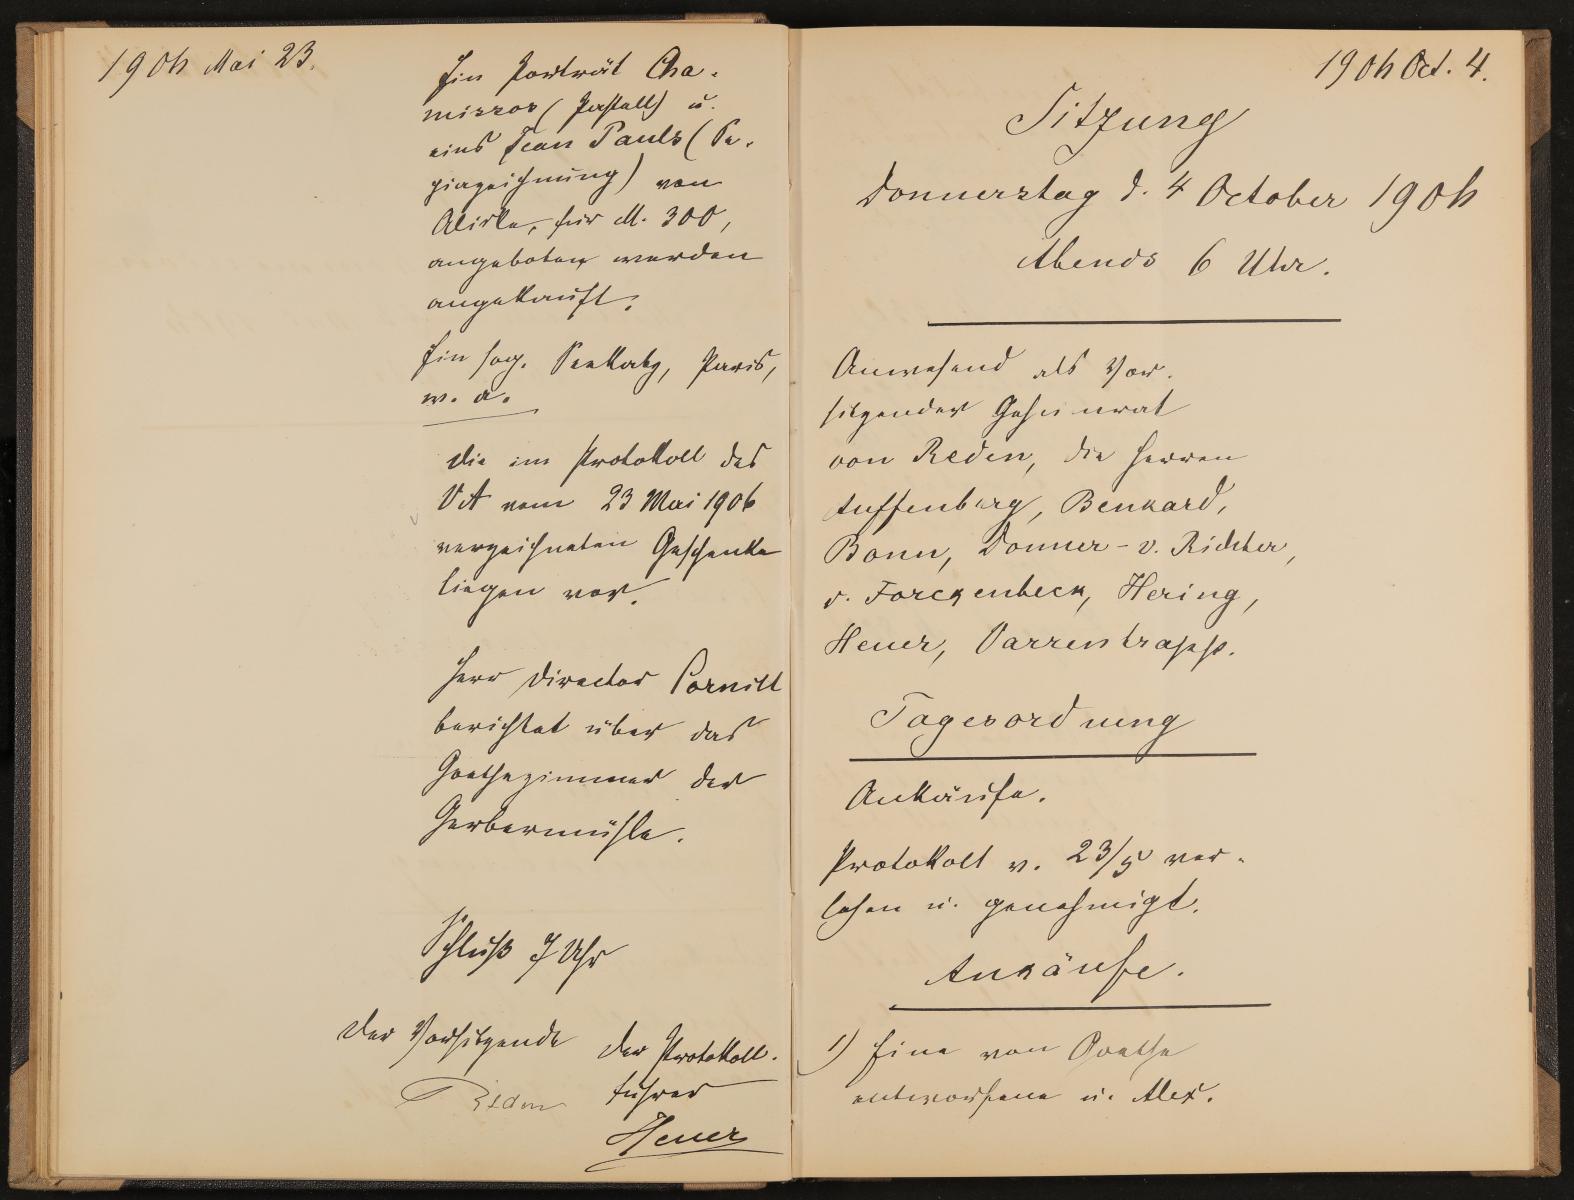 1906 Mai 23.
Ein Porträt Cha-
missos (Pastell) u.
eins Jean Pauls (Se-
piazeichnung) von
für M. 300,
angeboten werden
angekauft.
Ein sog. Seekatz, Paris,
w. o.
Die im Protokoll des
VA vom 23 Mai 1906
verzeichneten Geschenke
liegen vor.
Herr Director Cornill
berichtet über das
Goethezimmer der
Gerbermühle.
Schluß 7 Uhr
Der Vorsitzende
Der Protokoll-
führer
Reden
Heuer
1906 Oct. 4.
Sitzung
Donnerstag d. 4 October 1906
Abends 6 Uhr.
Anwesend als Vor-
sitzender Geheimrat
von Reden, die Herren
Auffenberg, Benkard,
Bonn, Donner-v. Richter,
v. Forckenbeck, Hering,
Heuer, Varrentrapp.
Tagesordnung
Ankäufe.
Protokoll v. 23/5 ver-
lesen u. genehmigt.
Ankäufe.
1) Eine von Goethe
entworfene u. Alex.